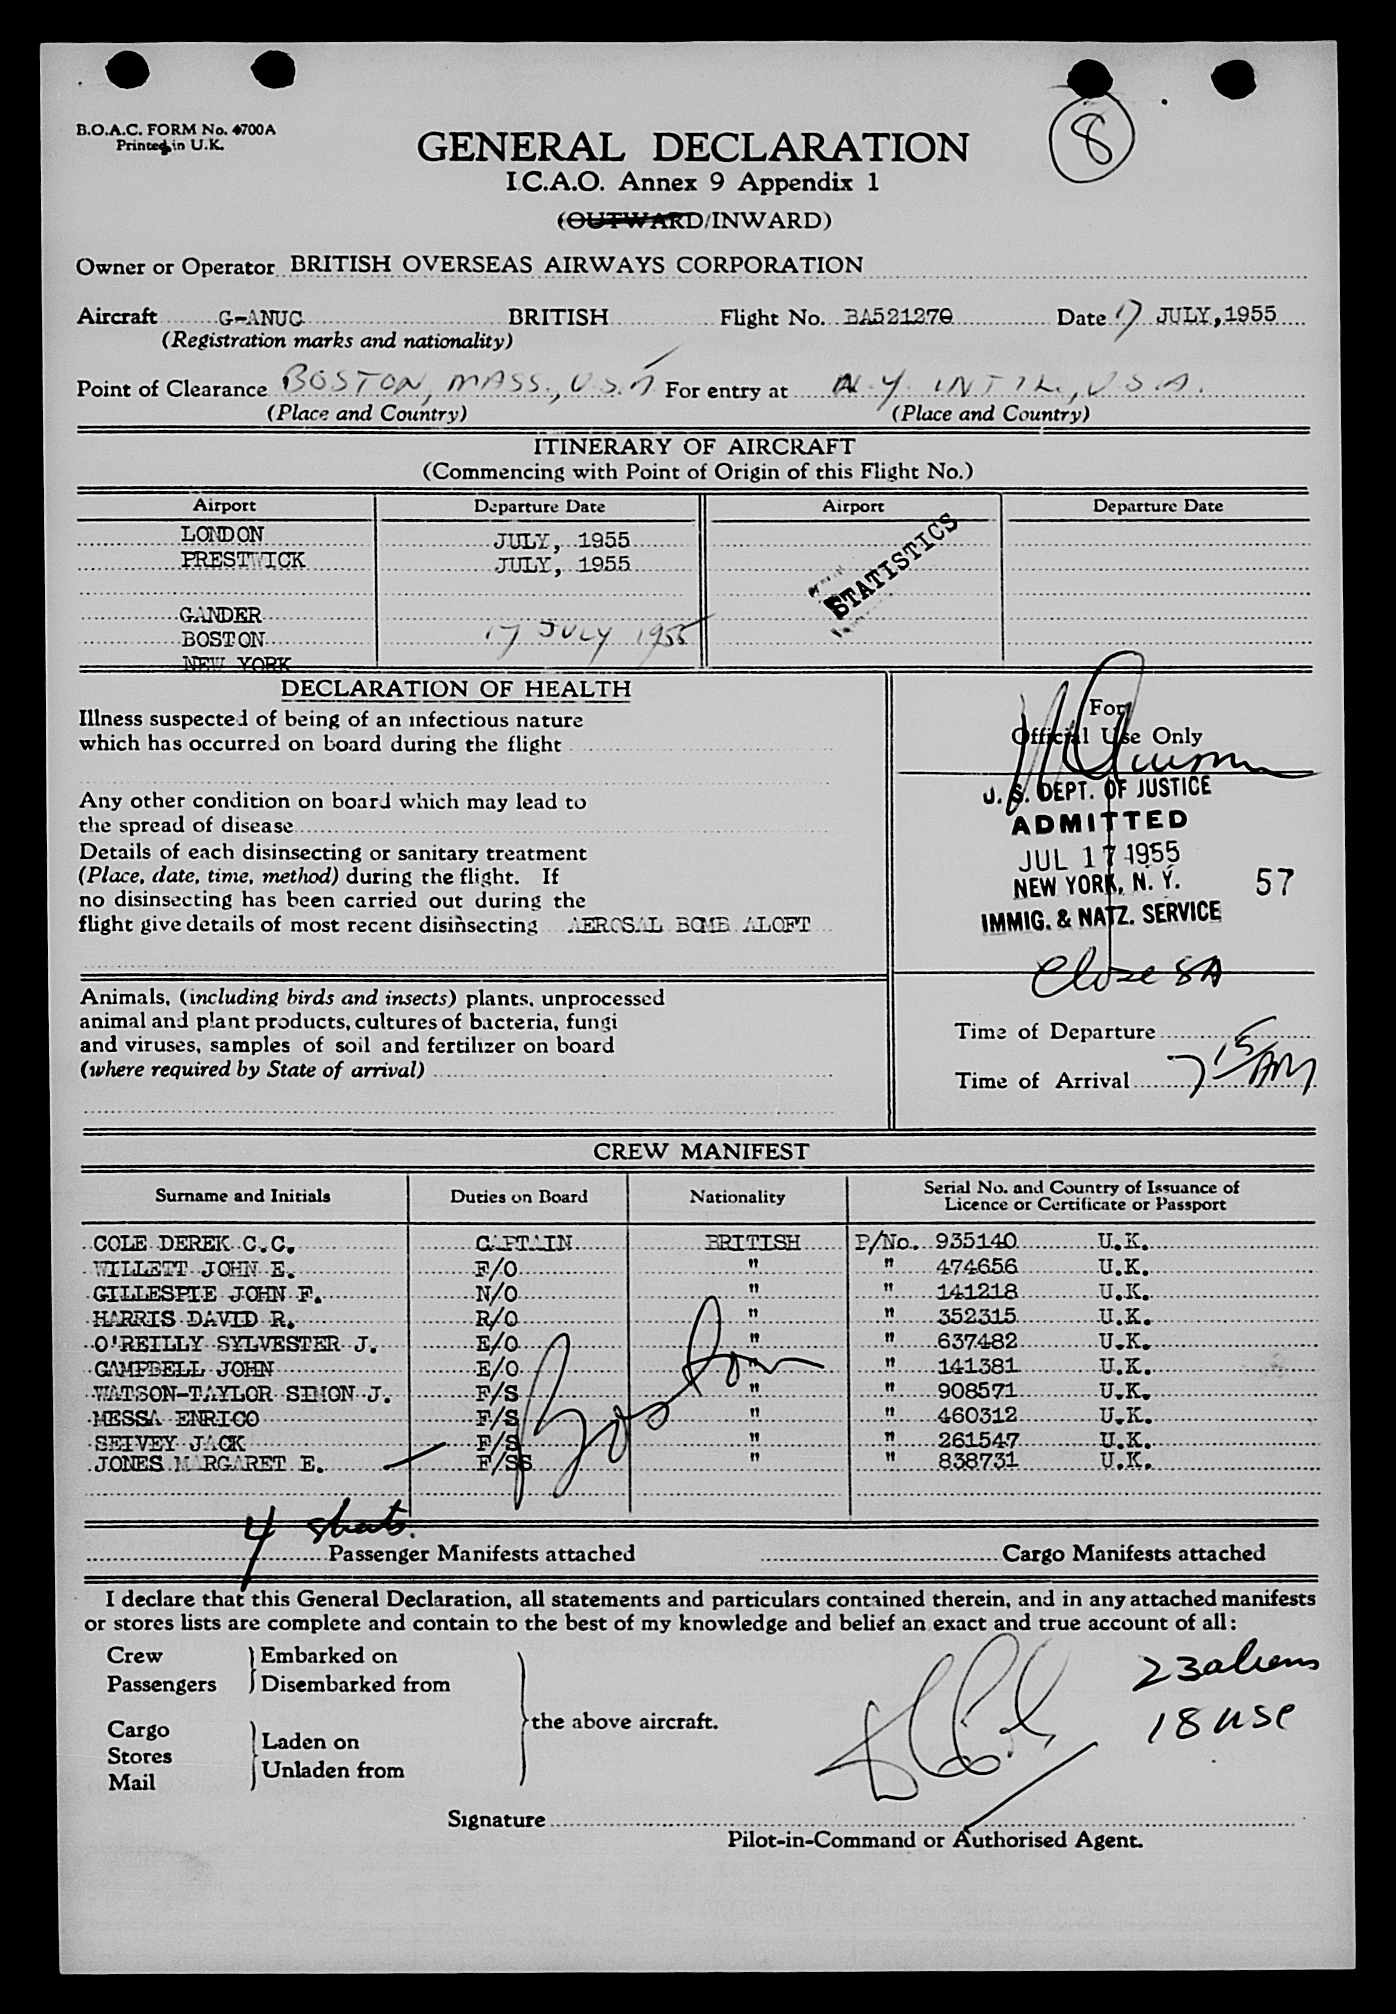 B.O.A.C. FORM No. 4700A
Printed in U.K.
8
GENERAL DECLARATION
I.C.A.O. Annex 9 Appendix 1
(OUTWARD/INWARD)
Owner or Operator BRITISH OVERSEAS AIRWAYS CORPORATION
Aircraft G-ANUC BRITISH Flight No. BA521270 Date 17 JULY, 1955
(Registration marks and nationality)
Point of Clearance BOSTON, MASS., U.S.A For entry at N.Y. INTL., U.S.A.
(Place and Country) (Place and Country)
ITINERARY OF AIRCRAFT
(Commencing with Point of Origin of this Flight No.)
Airport Departure Date Airport Departure Date
LONDON JULY, 1955
PRESTWICK JULY, 1955
STATISTICS
GANDER
BOSTON 17 JULY 1955
NEW YORK
DECLARATION OF HEALTH
Illness suspected of being of an infectious nature
which has occurred on board during the flight
Any other condition on board which may lead to
the spread of disease
Details of each disinsecting or sanitary treatment
(Place, date, time, method) during the flight. If
no disinsecting has been carried out during the
flight give details of most recent disinsecting AEROSAL BOMB ALOFT
For
Official Use Only
U. S. DEPT. OF JUSTICE
ADMITTED
JUL 17 1955
NEW YORK, N. Y. 57
IMMIG. & NATZ. SERVICE
Close SA
Animals, (including birds and insects) plants, unprocessed
animal and plant products, cultures of bacteria, fungi
and viruses, samples of soil and fertilizer on board
(where required by State of arrival)
Time of Departure
Time of Arrival 7 15 AM
CREW MANIFEST
Surname and Initials Duties on Board Nationality Serial No. and Country of Issuance of
Licence or Certificate or Passport
COLE DEREK C.C. CAPTAIN BRITISH P/No. 935140 U.K.
WILLETT JOHN E. F/O " " 474656 U.K.
GILLESPIE JOHN F. N/O " " 141218 U.K.
HARRIS DAVID R. R/O " " 352315 U.K.
O'REILLY SYLVESTER J. E/O " " 637482 U.K.
CAMPBELL JOHN E/O " " 141381 U.K.
WATSON-TAYLOR SIMON J. F/S " " 908571 U.K.
MESSA ENRICO F/S " " 460312 U.K.
SEIVEY JACK F/S " " 261547 U.K.
JONES MARGARET E. F/SS " " 838731 U.K.
Boston
4 sheets.
Passenger Manifests attached Cargo Manifests attached
I declare that this General Declaration, all statements and particulars contained therein, and in any attached manifests
or stores lists are complete and contain to the best of my knowledge and belief an exact and true account of all:
Crew Embarked on
Passengers Disembarked from
the above aircraft.
Cargo
Stores Laden on
Mail Unladen from
23 aliens
18 USC
Signature
Pilot-in-Command or Authorised Agent.